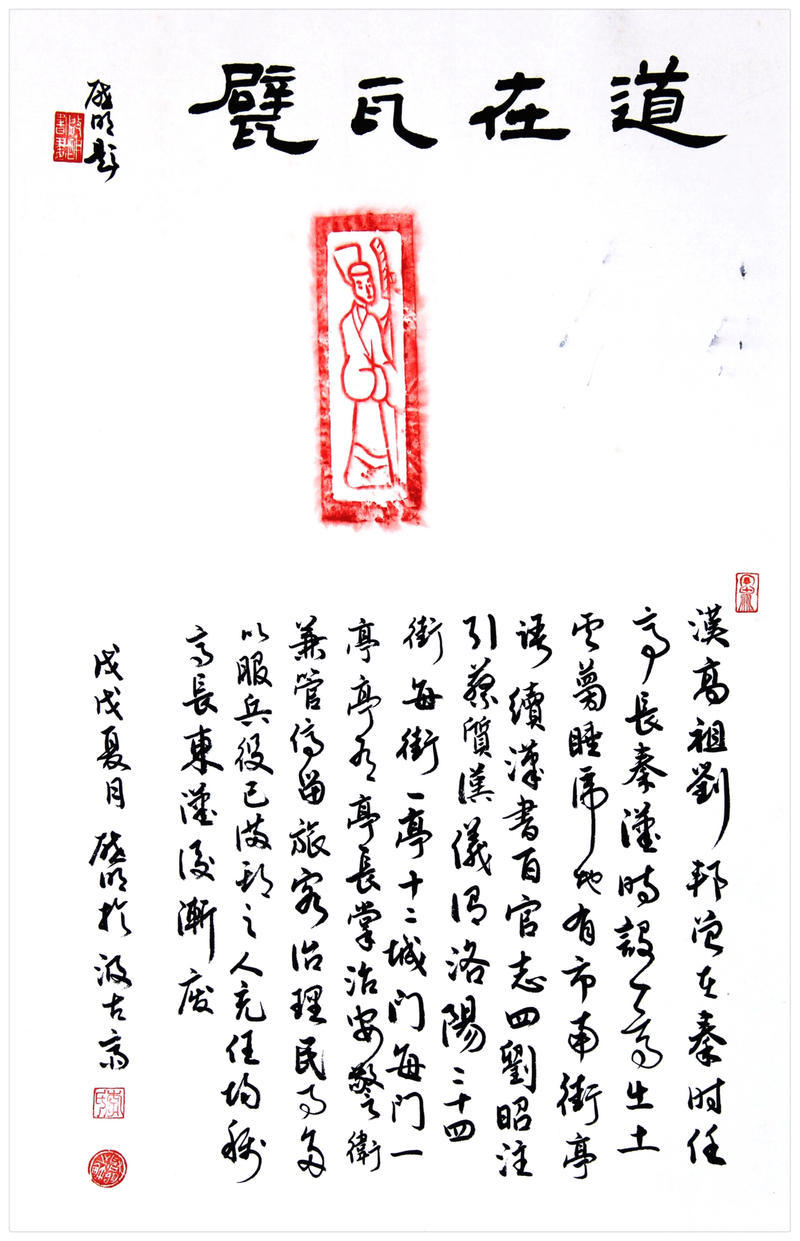 道在瓦甓
啟明題
漢高祖劉邦曾在秦時任
亭長秦漢時設亭出土
雲夢睡虎地有市南街亭
續漢書百官志四劉昭注
引蔡質漢儀謂洛陽二十四
街每街一亭十二城門每門一
亭亭有亭長掌治安警衛
兼管停留旅客治理民事多
以服兵役已滿期之人充任均稱
亭長東漢後漸廢
戊戌夏月啟明於汲古齋